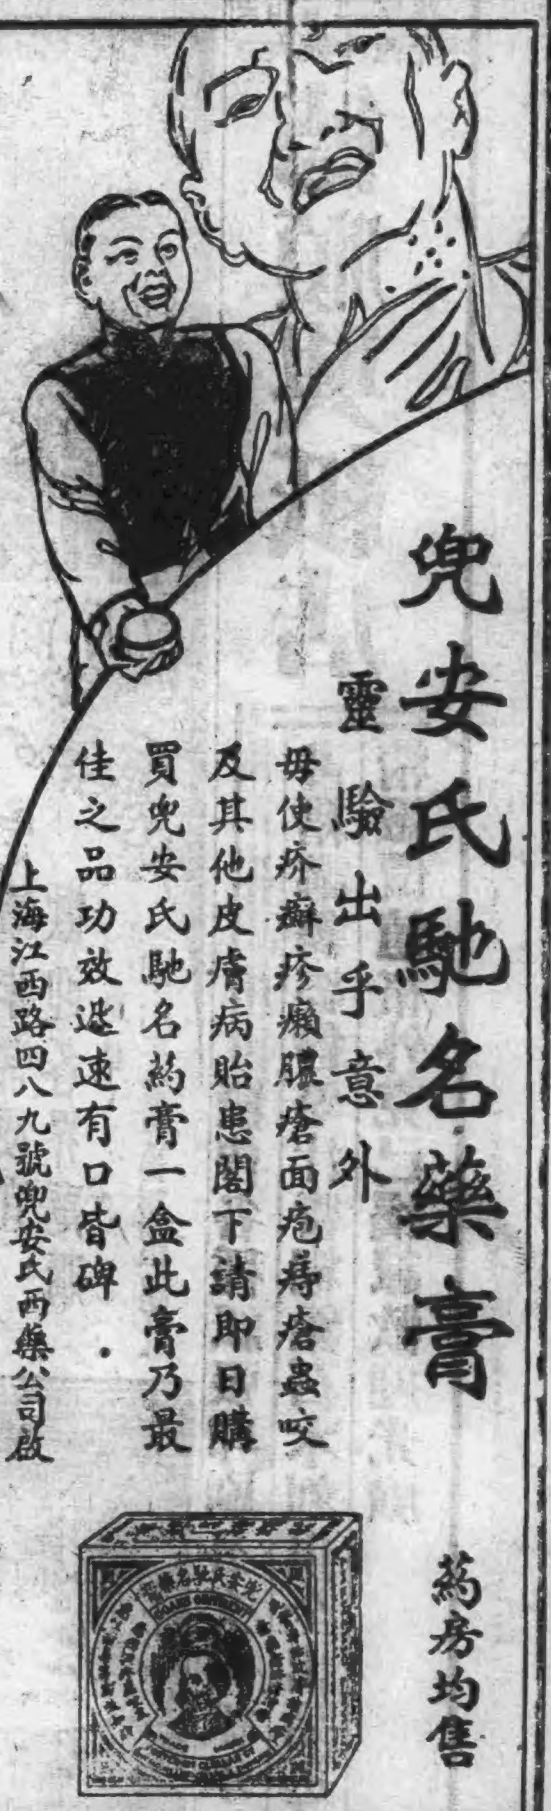 兜安氏馳名藥膏
靈驗出乎意外
毋使疥癬疹癩膿瘡面疱痔瘡蟲咬
及其他皮膚病貽患閣下請即日購
買兜安氏馳名葯膏一盒此膏乃最
佳之品功效迅速有口皆碑
上海江西路四八九號兜安氏西藥公司啟
葯房均售
兜安氏馳名藥膏
DOAN'S OINTMENT